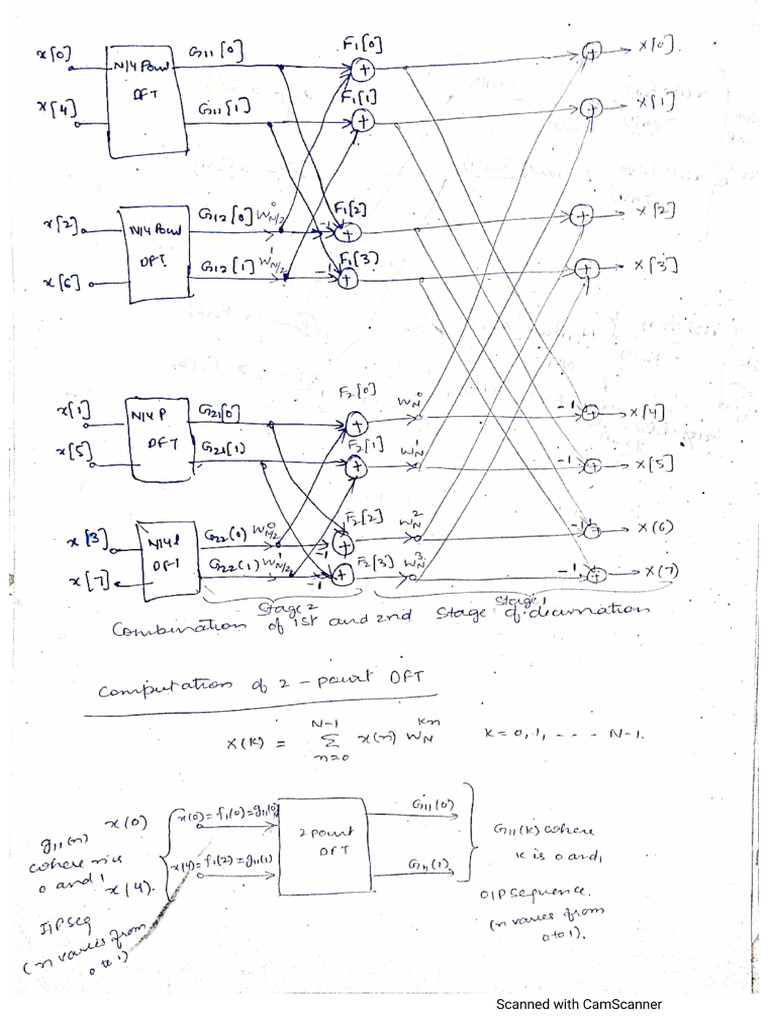 x[0]
N/4 Point
DFT
G11[0]
F1[0]
+
+
X[0].
x[4]
G11[1]
F1[1]
+
+
X[1]
x[2]
N/4 Point
DFT.
G12[0] W⁰N/2
-1
F1[2]
+
+
X[2]
x[6]
G12[1] W¹N/2
-1
F1[3)
+
+
X[3]
x[1]
N/4 P
DFT
G21[0]
F2[0]
+
W⁰N
-1
+
X[4]
x[5]
G21(1)
F2[1]
+
W¹N
-1
+
X[5]
x[3]
N/4 P
DFT
G22(0) W⁰N/2
-1
F2[2]
+
W²N
-1
+
X(6)
x[7]
G22(1) W¹N/2
-1
+
F2[3]
W³N
-1
+
X(7)
Stage 2
Stage 1
Combination of 1st and 2nd stage of decimation
Computation of 2-point DFT
X(k) = N-1 Σ n=0 x(n) W^kn_N k=0,1, --- N-1.
g11(n)
where n is
0 and 1
I/P seq
(n varies from
0 to 1)
x(0)
x(4).
x(0)=f1(0)=g11(0)
x(4)=f1(2)=g11(1)
2 point
DFT
G11(0)
G11(1)
G11(k) where
k is 0 and 1
O/P sequence.
(n varies from
0 to 1).
Scanned with CamScanner